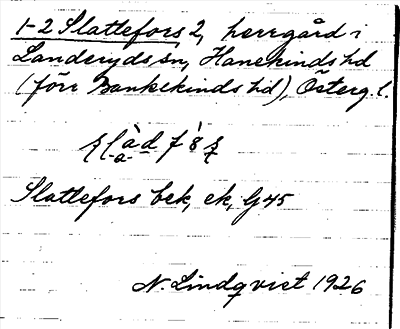 1-2 Slattefors 2, herrgård i
Landeryds sn, Hanekinds hd
(förr Bankekinds hd), Österg. l.
Slattefors bek, ek, Gj 45
N. Lindqvist 1926